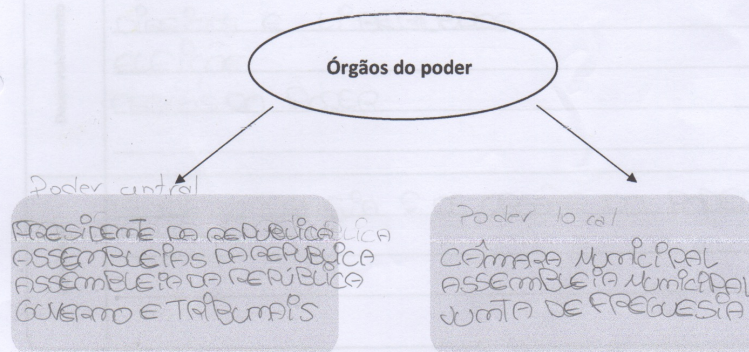 Órgãos do poder
Poder central
PRESIDENTE DA REPUBLICA
ASSEMBLEIAS DA REPUBLICA
ASSEMBLEIA DA REPÚBLICA
GOVERNO E TRIBUNAIS
Poder local
CÂMARA MUNICIPAL
ASSEMBLEIA MUNICIPAL
JUNTA DE FREGUESIA